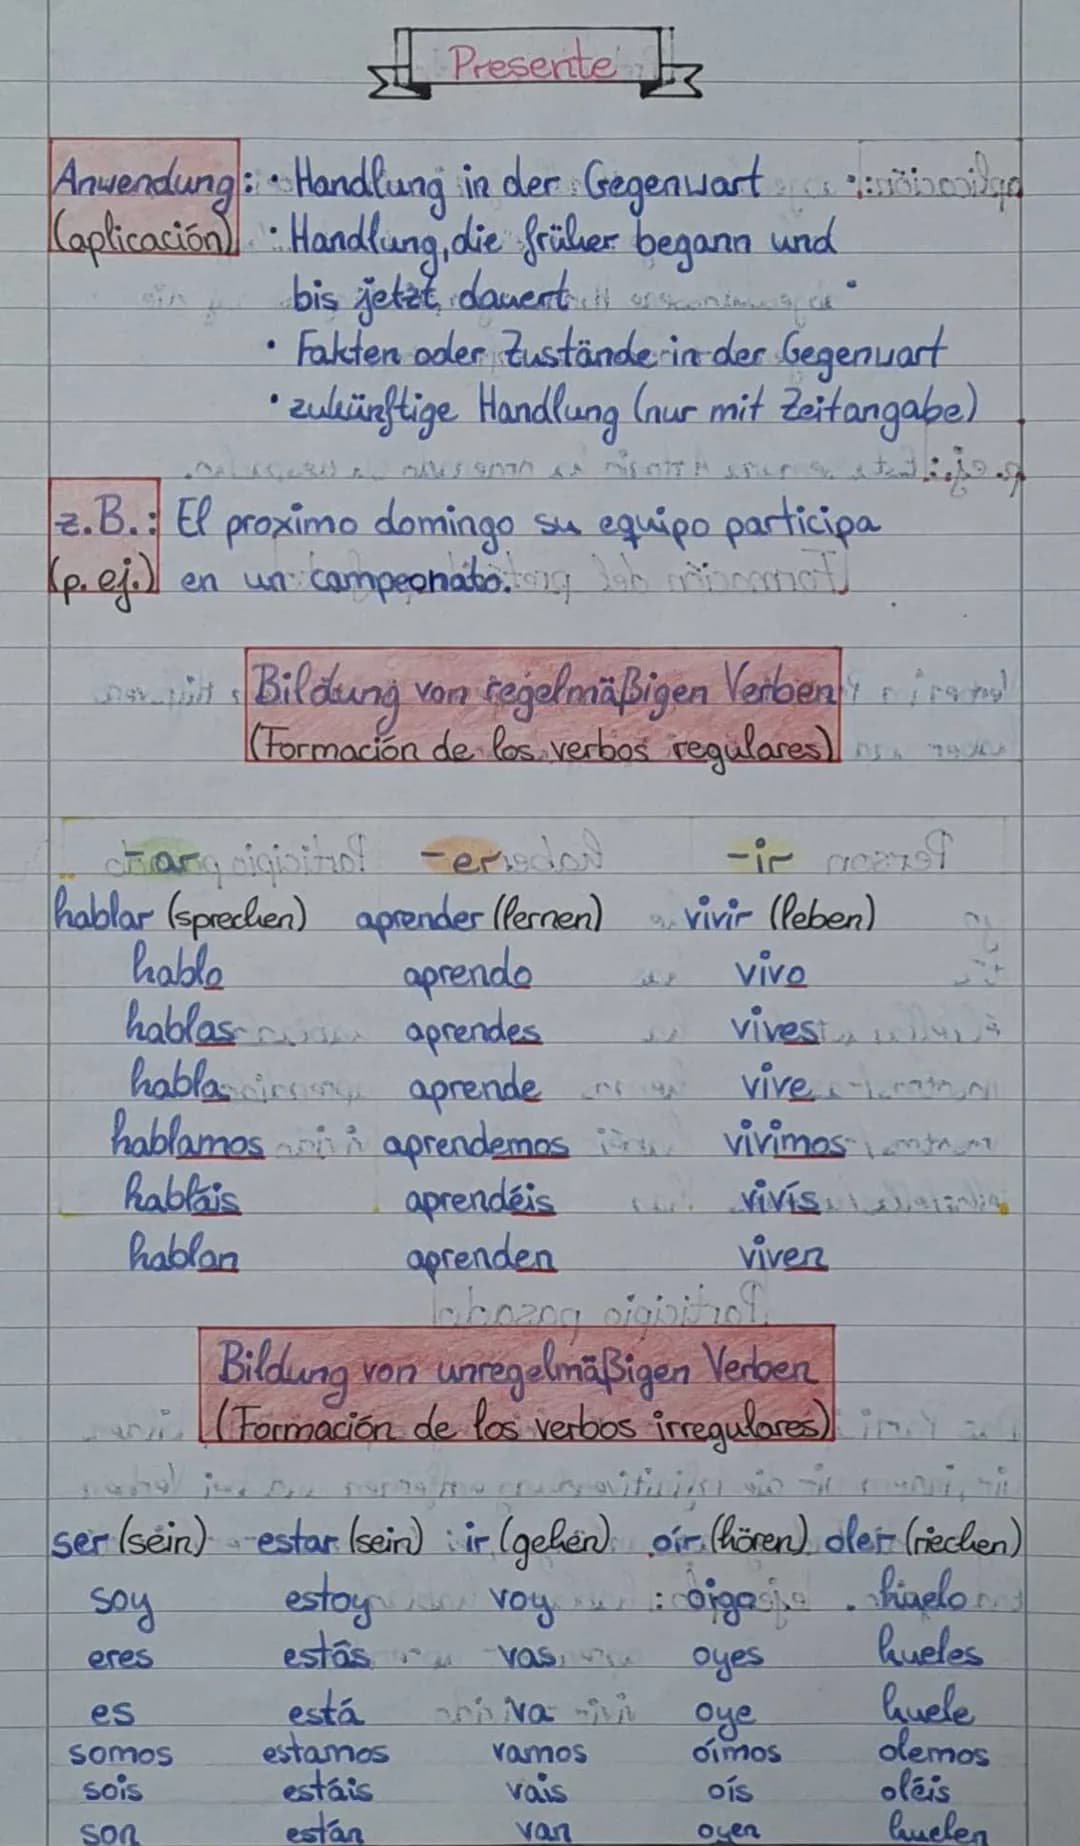 Presente
Anwendung: • Handlung in der Gegenwart
(aplicación) • Handlung, die früher begann und
bis jetzt dauert
• Fakten oder Zustände in der Gegenwart
• zukünftige Handlung (nur mit Zeitangabe)
z.B.: El proximo domingo su equipo participa
(p. ej.) en un campeonato.
Bildung von regelmäßigen Verben
(Formación de los verbos regulares)
-ar -er -ir
hablar (sprechen) aprender (lernen) vivir (leben)
hablo aprendo vivo
hablas aprendes vives
habla aprende vive
hablamos aprendemos vivimos
habláis aprendéis vivís
hablan aprenden viven
Bildung von unregelmäßigen Verben
(Formación de los verbos irregulares)
ser (sein) estar (sein) ir (gehen) oír (hören) oler (riechen)
soy estoy voy oigo huelo
eres estás vas oyes hueles
es está va oye huele
somos estamos vamos oímos olemos
sois estáis vais oís oléis
son están van oyen huelen